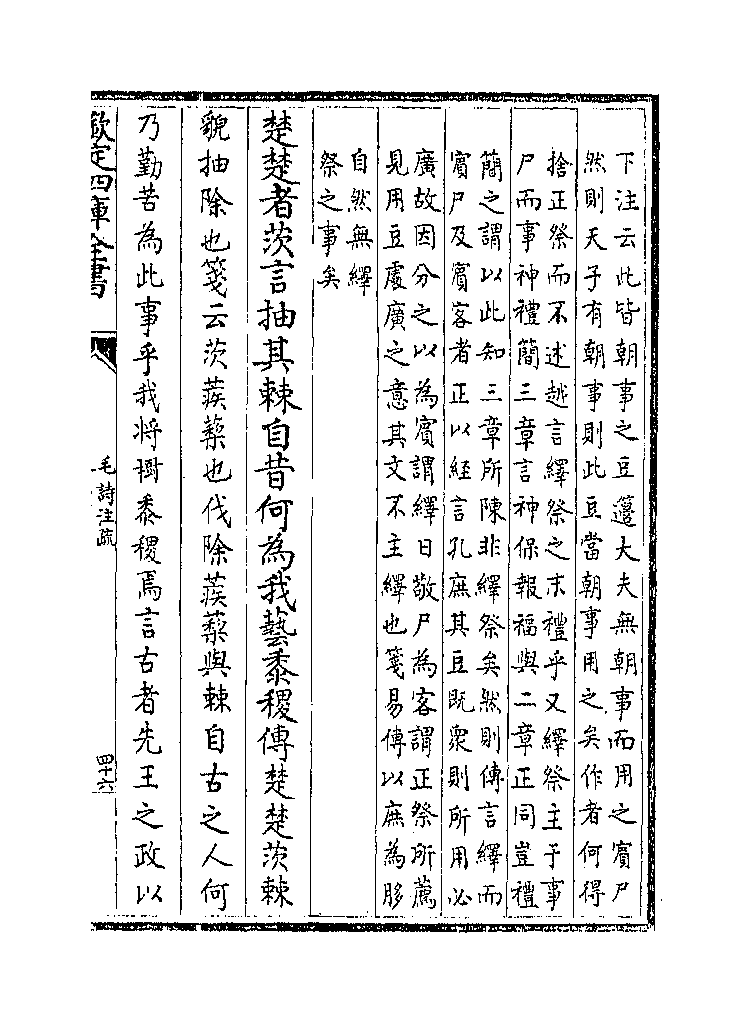 下注云此皆朝事之豆籩大夫無朝事而用之賓尸
然則天子有朝事則此豆當朝事用之矣作者何得
捨正祭而不述越言繹祭之末禮乎又繹祭主于事
尸而事神禮簡三章言神保報福與二章正同豈禮
簡之謂以此知三章所陳非繹祭矣然則傳言繹而
賓尸及賓客者正以經言孔庶其豆既衆則所用必
廣故因分之以為賓謂繹日敬尸為客謂正祭所薦
見用豆處廣之意其文不主繹也箋易傳以庶為䏧
自然無繹
祭之事矣
楚楚者茨言抽其棘自昔何為我藝黍稷傳楚楚茨棘
貌抽除也箋云茨蒺藜也伐除蒺藜與棘自古之人何
乃勤苦為此事乎我將樹黍稷焉言古者先王之政以
欽定四庫全書
毛詩注疏
四十六